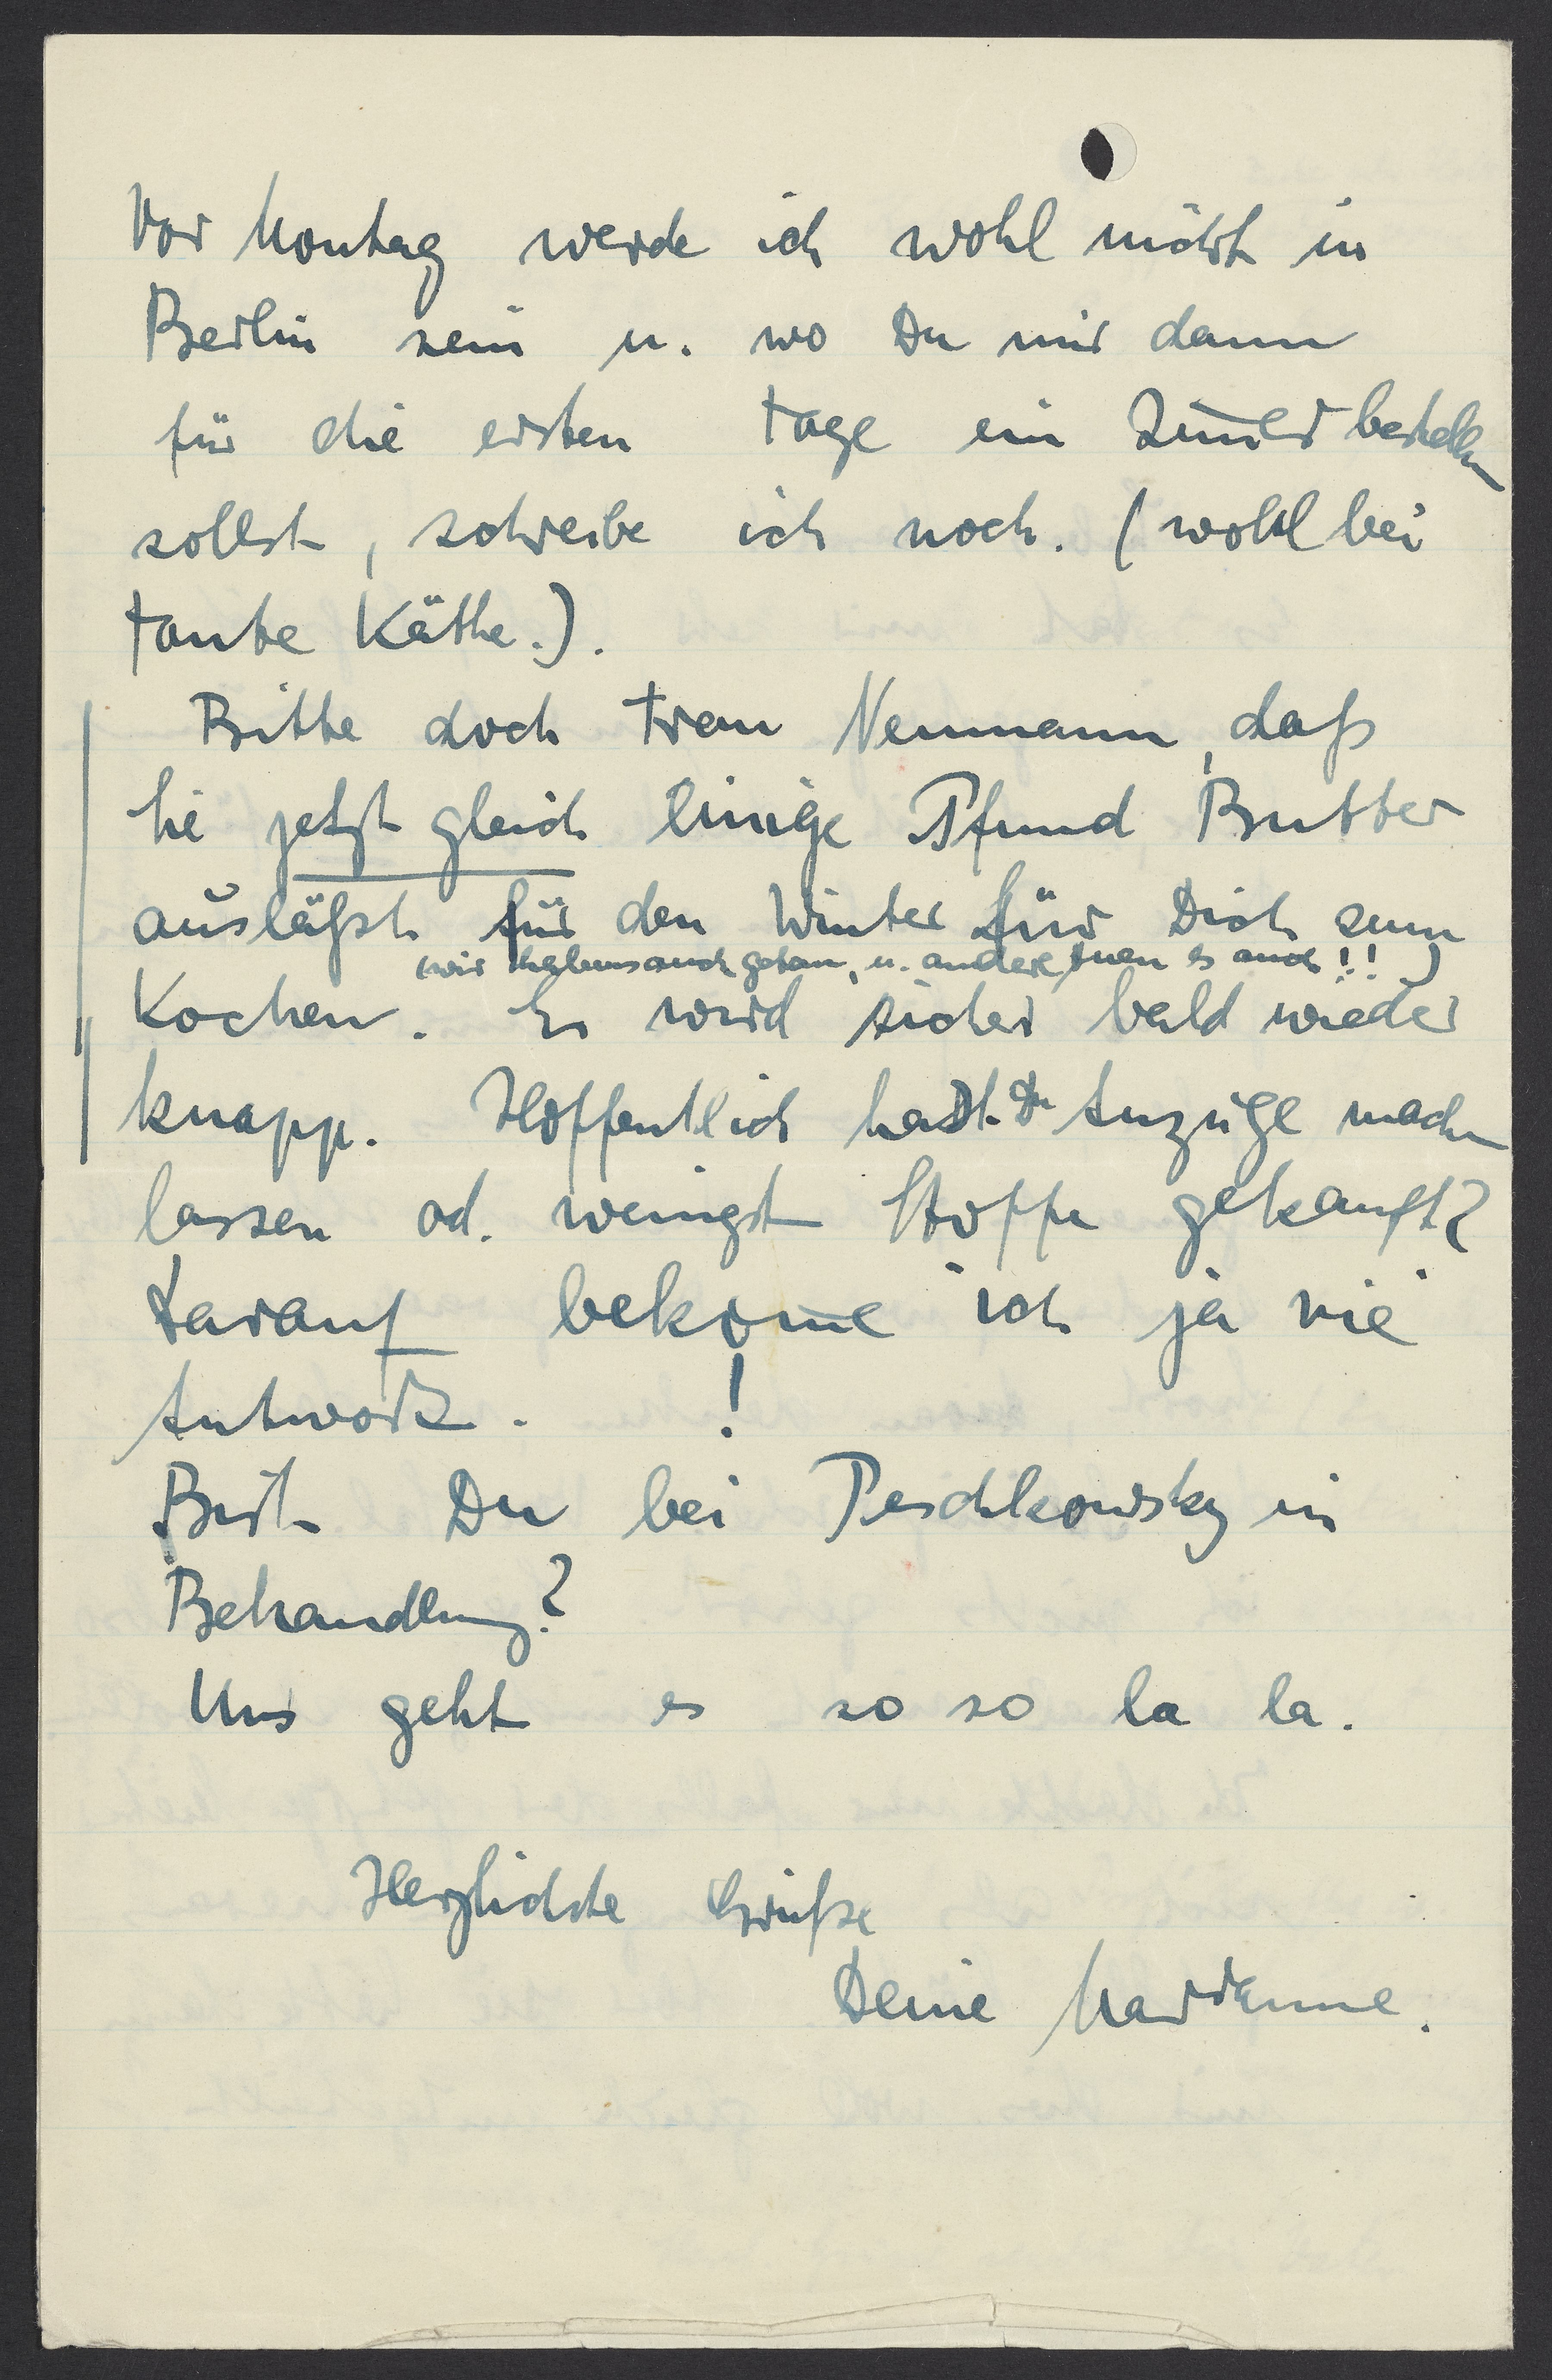 Vor Montag werde ich wohl nicht in
Berlin sein u. wo Du mir dann
für die ersten Tage ein Zim̅er bestellen
sollst, schreibe ich noch. (wohl bei
Tante Käthe.).
Bitte doch Frau Neumann, daß
sie jetzt gleich einige Pfund Butter
ausläßt für den Winter für Dich zum
(wir haben auch getan, u. andere tuen es auch!!)
Kochen. Es wird sicher bald wieder
knapp. Hoffentlich hast Du Anzüge machen
lassen od. wenigst Stoffe gekauft?
Darauf bekom̅e ich ja nie
Antwort. !
Bist Du bei Peschkowsky in
Behandlung?
Uns geht es so so la la.
Herzlichste Grüße
Deine Marianne.